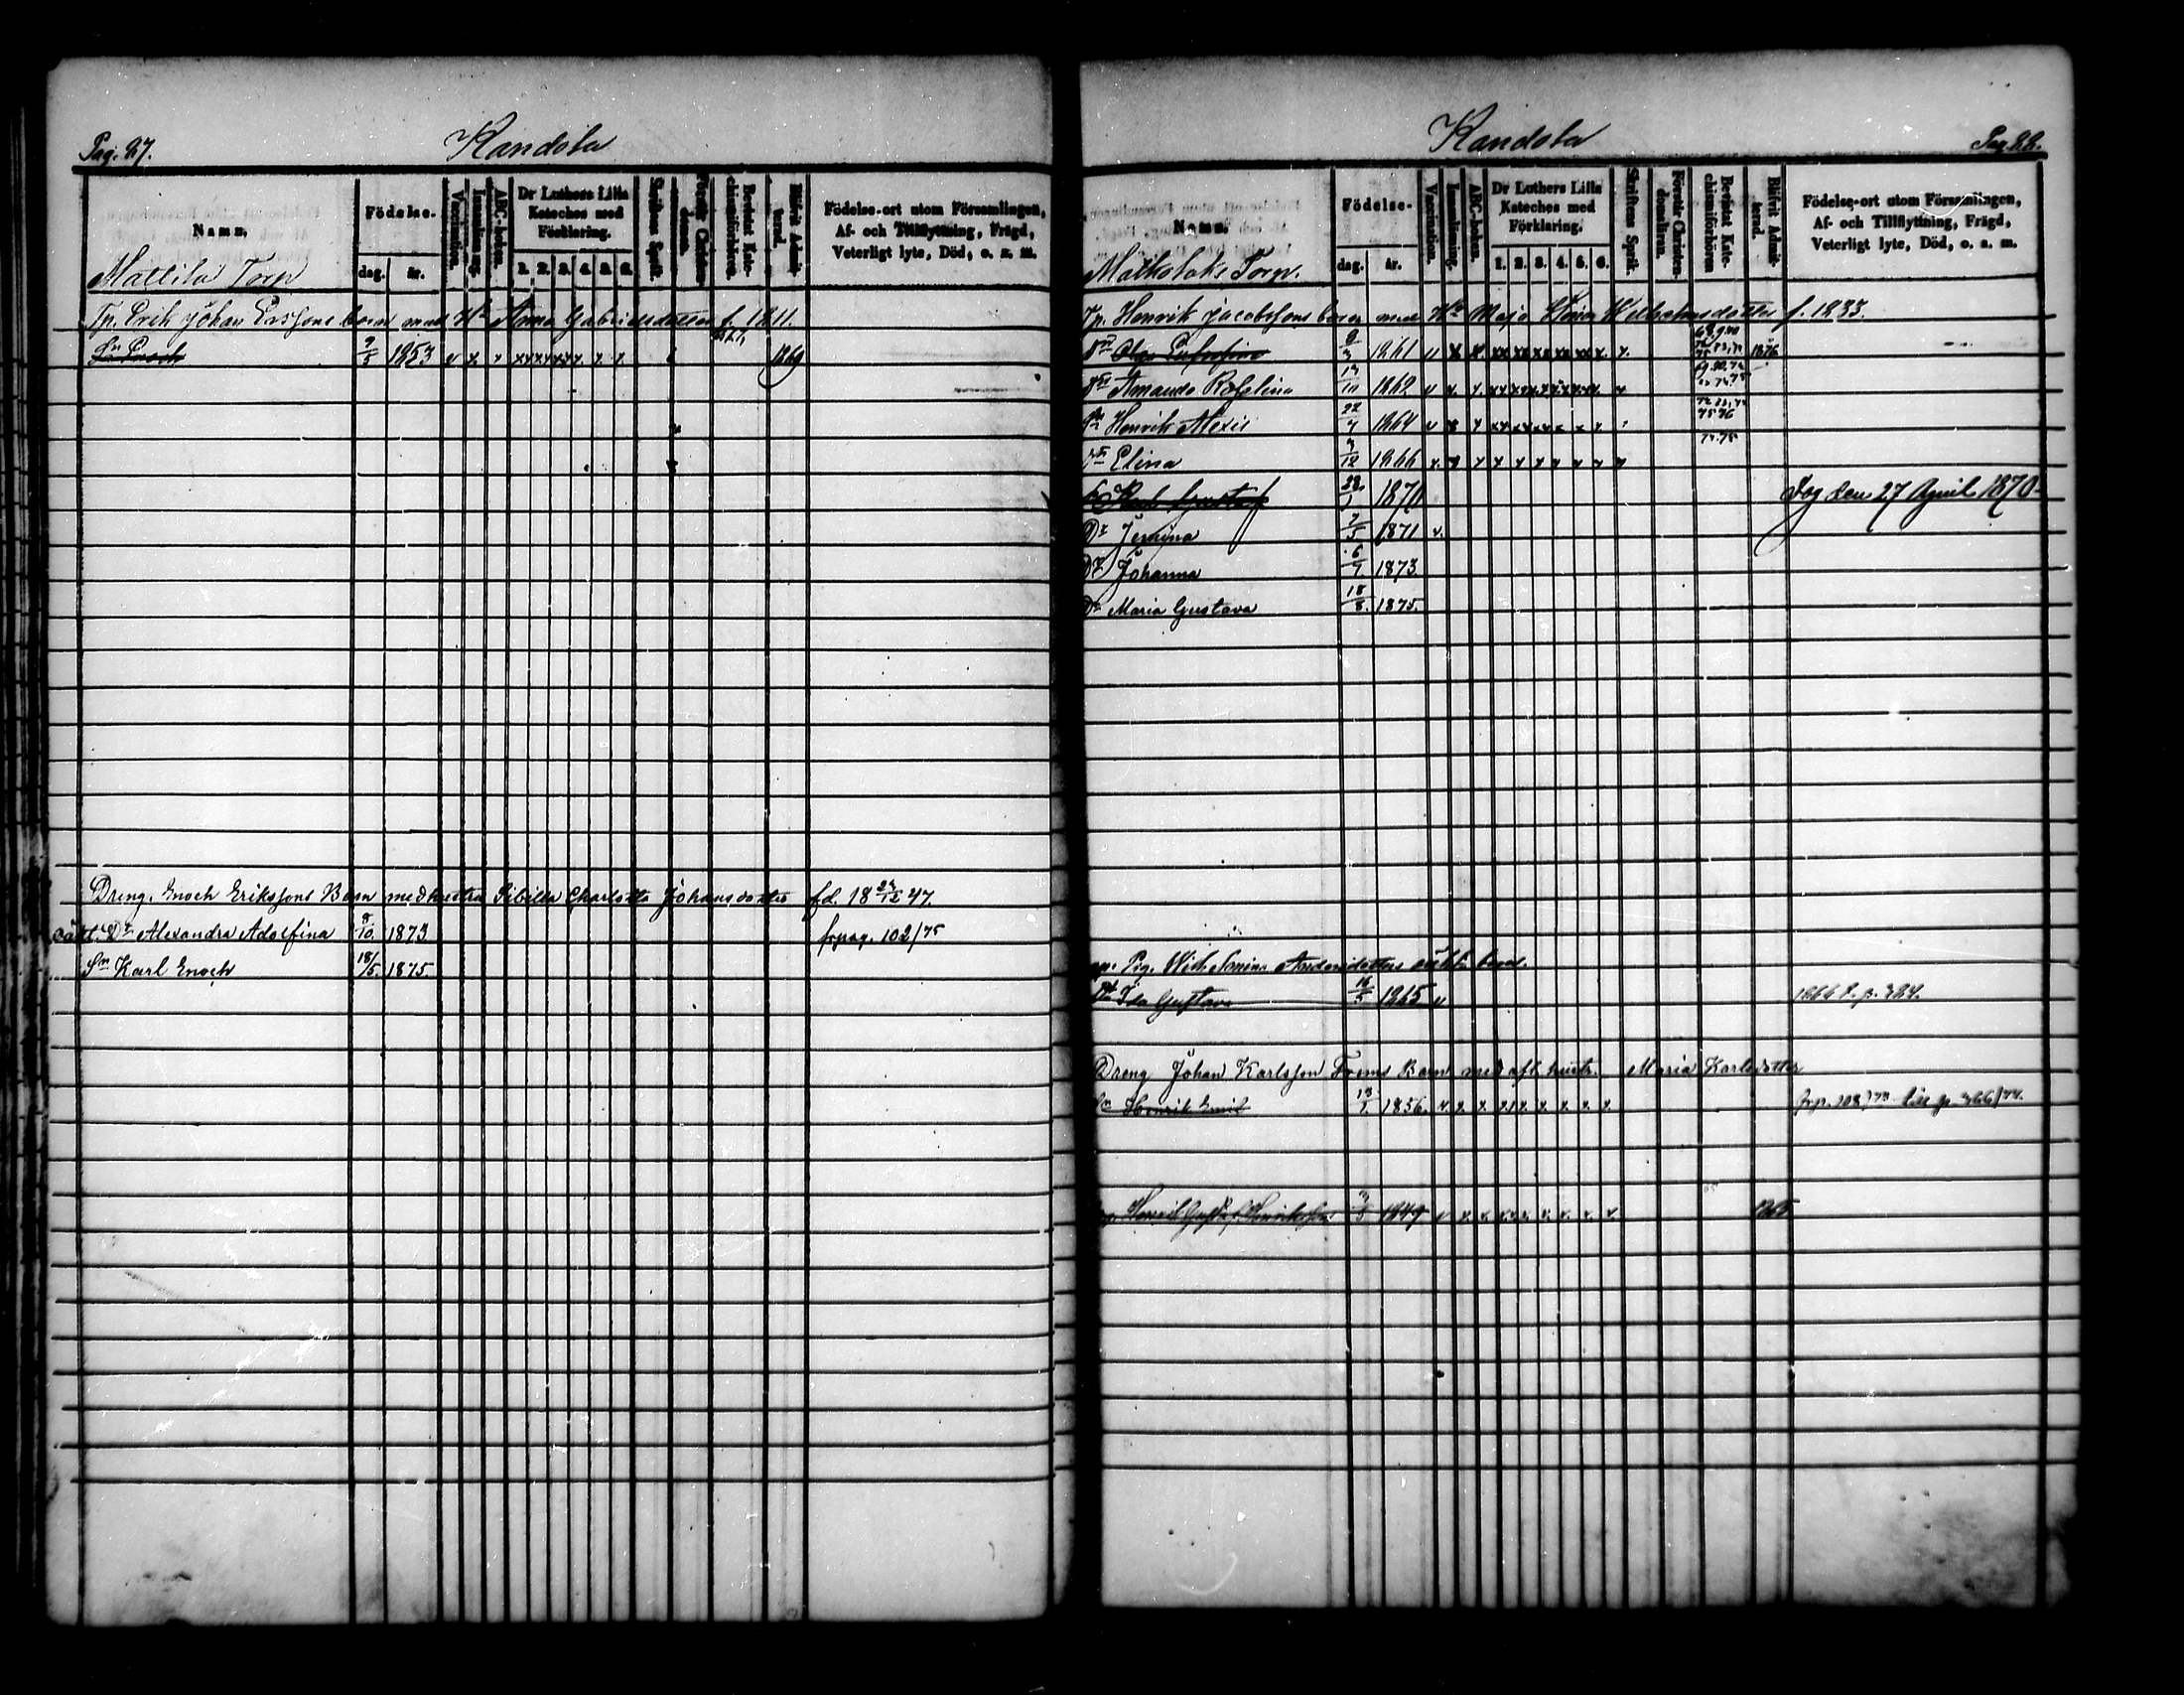 Pag. 87.
Kandola
Namn.
Födelse.
dag.
år.
Vaccination.
Innanläsning.
ABC-boken.
Dr Luthers Lilla Kateches med Förklaring.
1. 2. 3. 4. 5. 6.
Skriftens Språk.
Förstår Christendomen.
Bevistat Katechismiförhören.
Blifvit Admitterad.
Födelse-ort utom Församlingen,
Af- och Tillflyttning, Frägd,
Veterligt lyte, Död, o. s. m.
Mattila Torp
Tp. Erik Johan Erssons barn med Hu Anna Gabrielsdotter f. 1811.
Sn Enoch 9/5 1853 1869
Dreng. Enoch Erikssons Barn med hustru Sibilla Charlotta Johansdotter fd. 18 24/12 47.
oäkt. Dr Alexandra Adolfina 8/10 1873 fr pag. 102/75
Sn Karl Enoch 18/5 1875
Kandola
Pag. 88.
Namn.
Födelse-
dag.
år.
Vaccination.
Innanläsning.
ABC-boken.
Dr Luthers Lilla Kateches med Förklaring.
1. 2. 3. 4. 5. 6.
Skriftens Språk.
Förstår Christendomsläran.
Bevistat Katechismiförhören
Blifvit Admitterad.
Födelse-ort utom Församlingen,
Af- och Tillflyttning, Frägd,
Veterligt lyte, Död, o. s. m.
Torp.
Tp. Henrik Jacobssons barn med Hu Maja Stina Wilhelmsdotter f. 1833.
Olga 1861 1876
Amanda Rosalina 1862
Sn Henrik Alexis 22/7 1864 75 76
Elina 3/12 1866 74.75
Karl Gustaf 28/1 1870 Dog den 27 April 1870
Dr Jemina 7/5 1871
Dr Johanna 6/7 1873
Dr Maria Gustava 18/8 1875
Pig. Wilhelmina Andersdotters oäkta barn.
Ida Gustava 16/5 1865 p. 324.
Dreng Johan Karlsson Froms Barn med afl. hustr. Maria Karlsdotter
Sn Henrik Emil 13/1 1856. till p. 366/74.
Henrik Gustaf Henriksson 1849